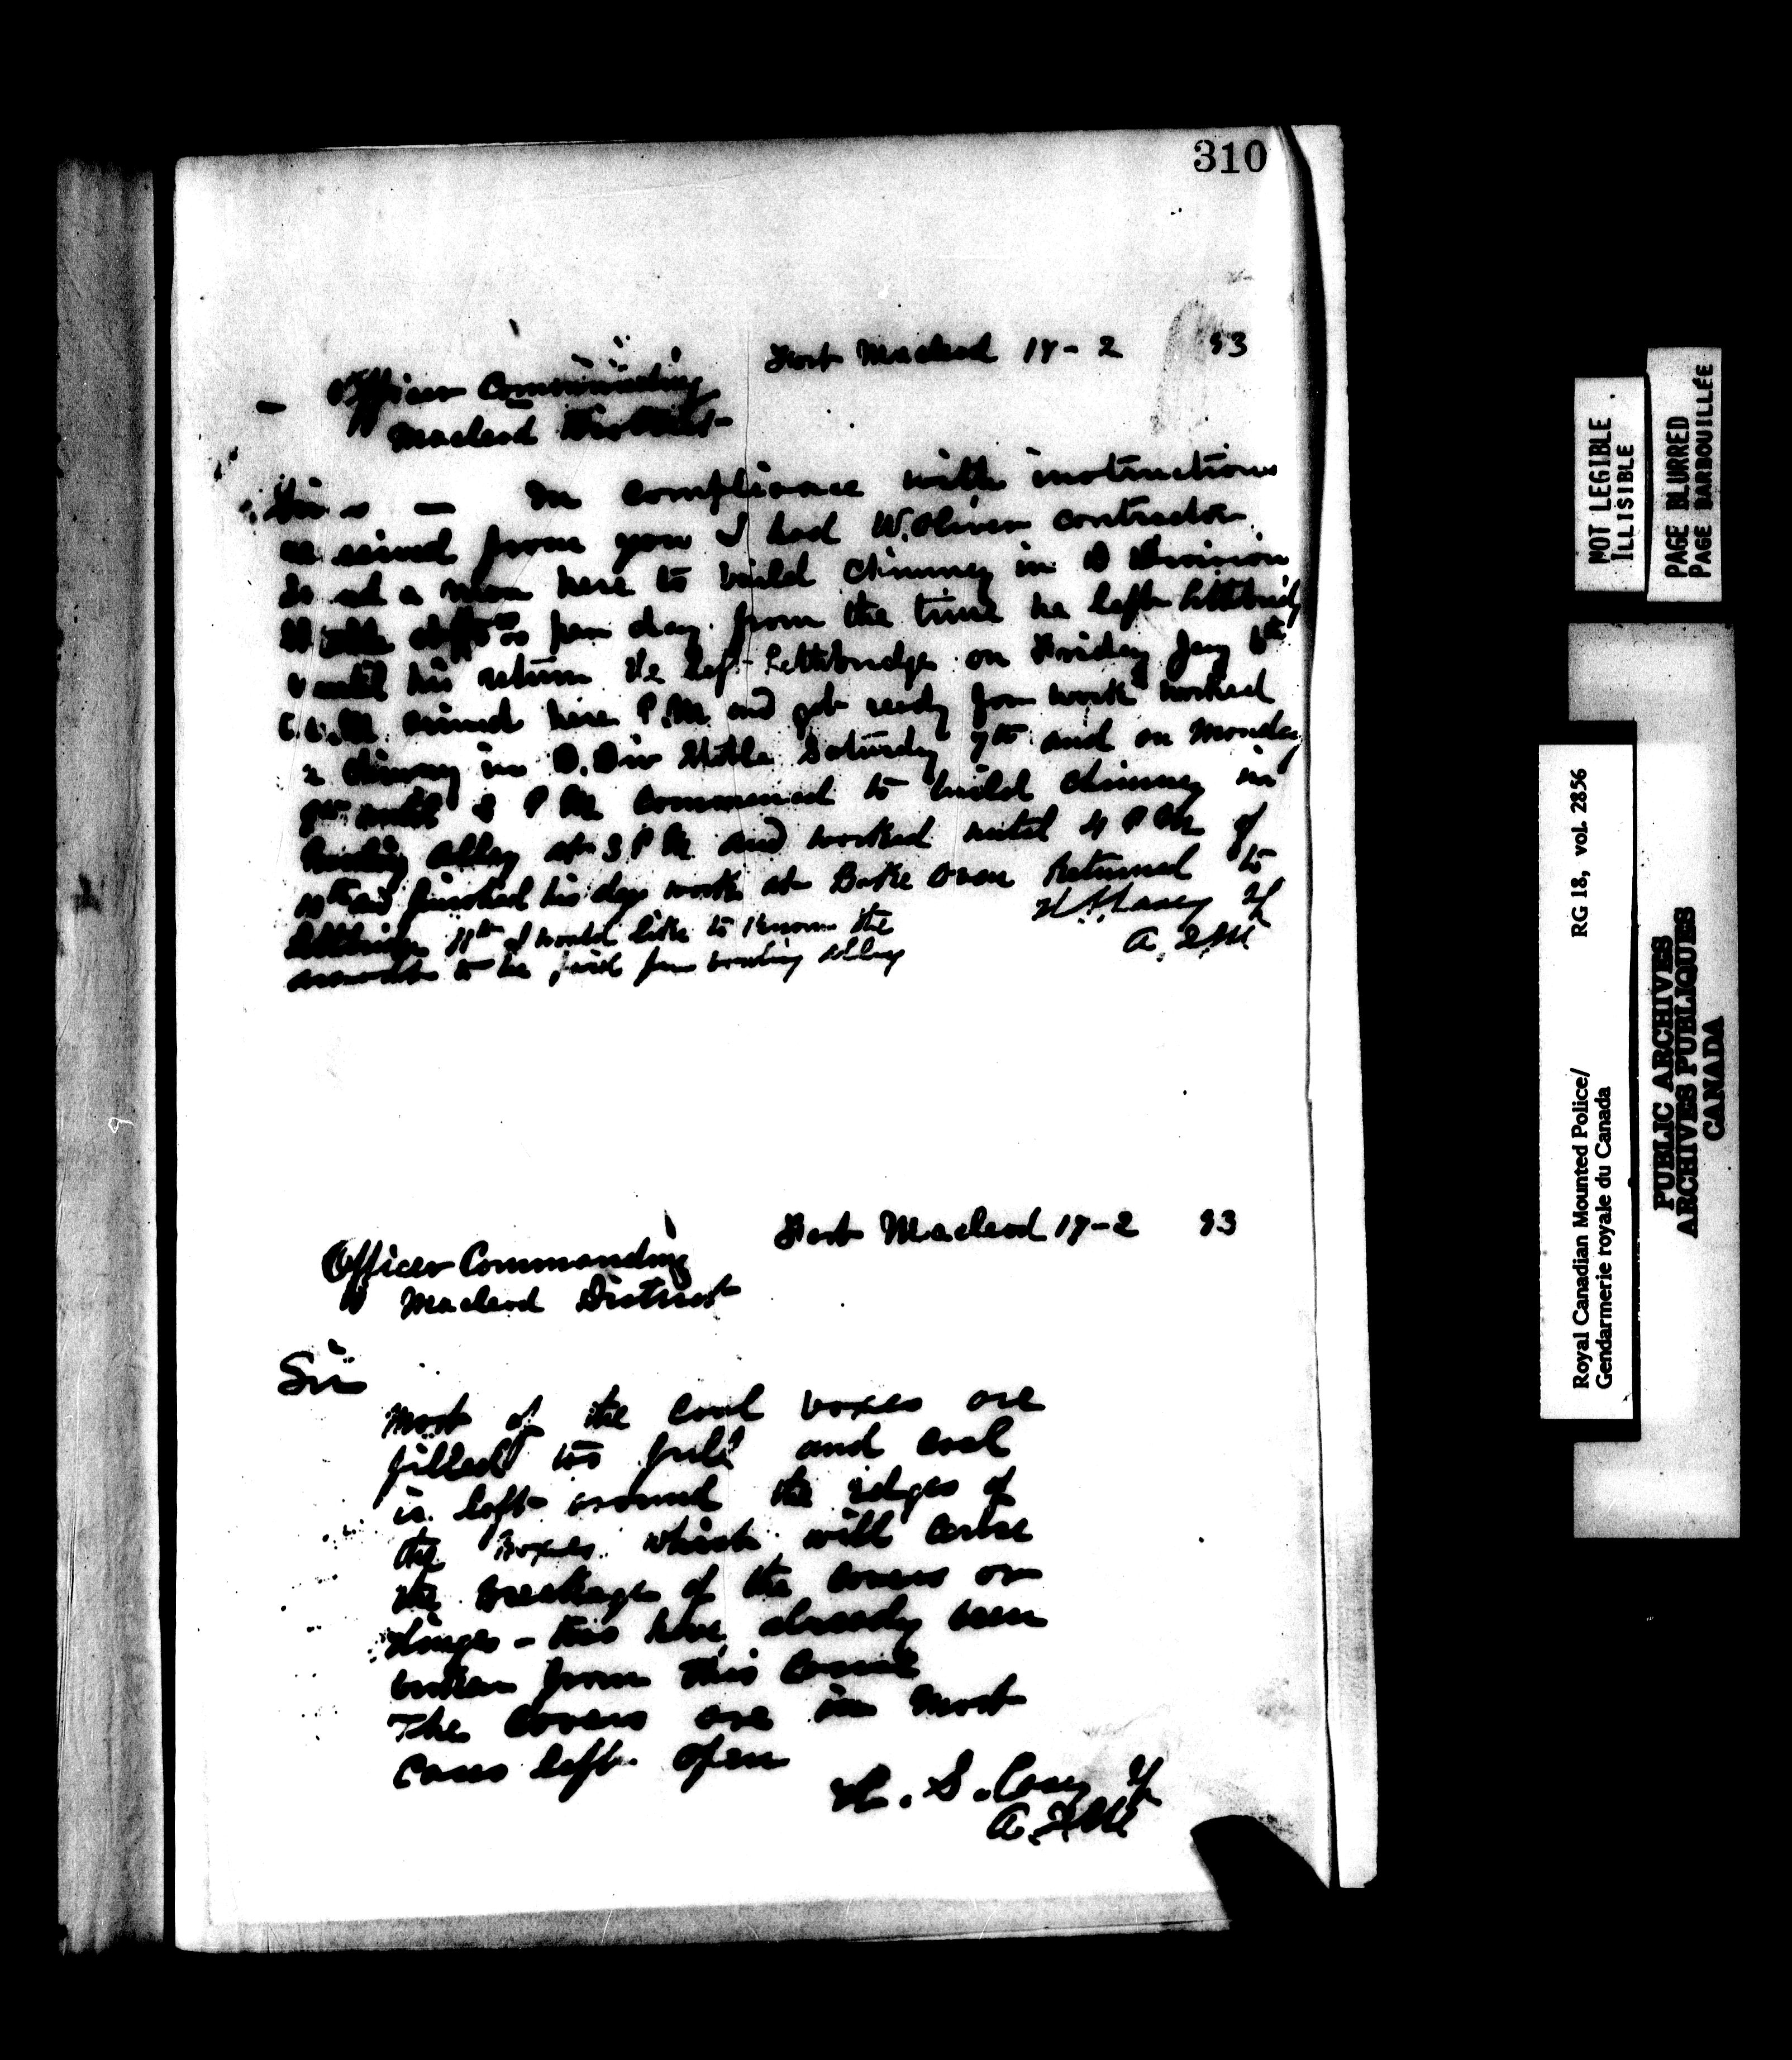 310
Fort Macleod 17-2 93
Officer Commanding
Macleod District
Sir — In compliance with instructions
received from you I had W. Oliver contractor
send a man here to build chimney in D Division
per day from the time he left Lethbridge
until his return He left Lethbridge on Friday Jany 6th
A.M. arrived here P.M. and got ready for work worked
chimney in D. Div Saturday 7th and on Monday
9th until 3 P.M. commenced to build chimney in
Bowling Alley at 3 P.M. and worked until 4 P.M. of
10th and finished his days work at Bake Oven Returned to
Lethbridge 11th I would like to know the
amount to be paid for bowling alley
H. S. Casey
Fort Macleod 17-2 93
Officer Commanding
Macleod District
Sir
Most of the coal boxes are
filled too full and coal
is left around the edges of
the Boxes which will cause
the breakage of the covers or
hinges - two have already been
broken from this cause
The covers are in most
cases left open
H. S. Casey
NOT LEGIBLE
ILLISIBLE
PAGE BLURRED
PAGE BARBOUILLÉE
RG 18, vol. 2856
Royal Canadian Mounted Police/
Gendarmerie royale du Canada
PUBLIC ARCHIVES
ARCHIVES PUBLIQUES
CANADA